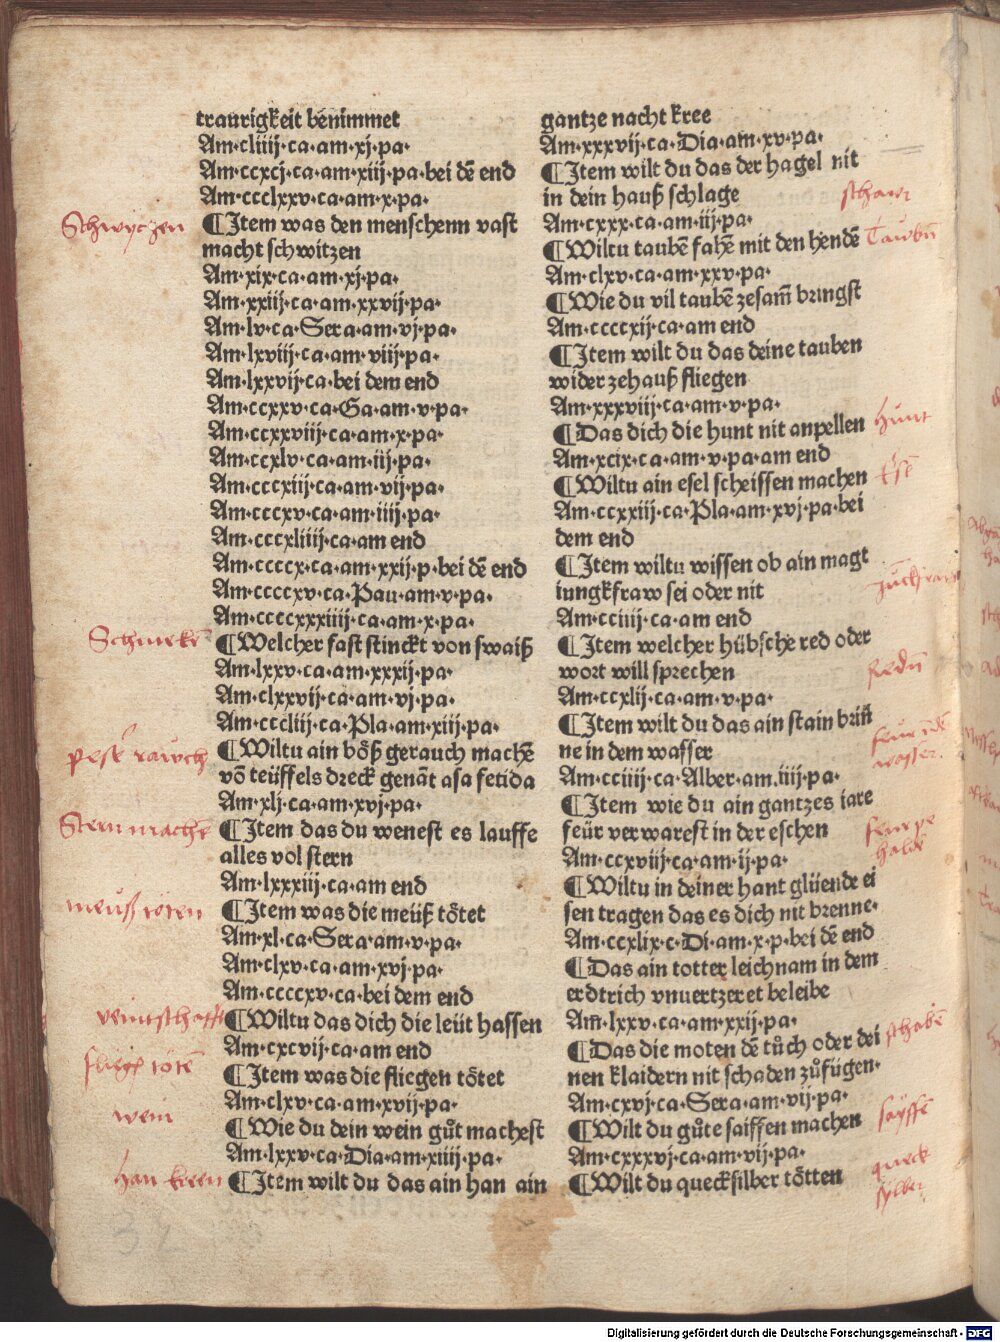 traurigkeit benimmet
Am·cliiij·ca·am·xj·pa·
Am·ccxcj·ca·am·xiij·pa·bei dē end
Am·ccclxxv·ca·am·x·pa·
Schwyczen
¶Item was den menschenn vast
macht schwitzen
Am·xix·ca·am·xj·pa·
Am·xxiij·ca·am·xxvij·pa·
Am·lv·ca·Sera·am·vj·pa·
Am·lxviij·ca·am·viij·pa·
Am·lxxvij·ca·bei dem end
Am·ccxxv·ca·Ga·am·v·pa·
Am·ccxxviij·ca·am·x·pa·
Am·ccxlv·ca·am·iij·pa·
Am·cccxiij·ca·am·vij·pa·
Am·cccxv·ca·am·iiij·pa·
Am·cccxliiij·ca·am end
Am·ccccx·ca·am·xxij·p·bei dē end
Am·ccccxv·ca·Pau·am·v·pa·
Am·ccccxxxiiij·ca·am·x·pa·
Schmekē
¶Welcher fast stinckt von swaiß
Am·lxxv·ca·am·xxxij·pa·
Am·clxxvij·ca·am·vj·pa·
Am·cccliij·ca·Pla·am·xiij·pa·
pesr rawch
¶Wiltu ain bōß gerauch machē
vō teüffels dreck genāt asa fetida
Am·xlj·ca·am·xvj·pa·
Stern machē
¶Item das du wenest es lauffe
alles vol stern
Am·lxxxiij·ca·am end
meuß töten
¶Item was die meüß tötet
Am·xl·ca·Sera·am·v·pa·
Am·clxv·ca·am·xvj·pa·
Am·ccccxv·ca·bei dem end
veintschafft
¶Wiltu das dich die leüt hassen
Am·cxcvij·ca·am end
fliegē tötē
¶Item was die fliegen tötet
Am·clxv·ca·am·xvij·pa·
wein
¶Wie du dein wein gůt machest
Am·lxxv·ca·Dia·am·xiiij·pa·
han kreen
¶Item wilt du das ain han ain
gantze nacht kree
Am·xxxvij·ca·Dia·am·xv·pa·
¶Item wilt du das der hagel nit
in dein hauß schlage
schawr
Am·cxxx·ca·am·iij·pa·
¶Wiltu taubē fahē mit den hendē
Tawbn̄
Am·clxv·ca·am·xxv·pa·
¶Wie du vil taubē zesam̄ bringst
Am·ccccxij·ca·am end
¶Item wilt du das deine tauben
wider zehauß fliegen
Am·xxxviij·ca·am·v·pa·
¶Das dich die hunt nit anpellen
hunt
Am·xcix·ca·am·v·pa·am end
¶Wiltu ain esel scheissen machen
Esē
Am·ccxxiij·ca·Pla·am·xvj·pa·bei
dem end
¶Item wiltu wissen ob ain magt
iungkfraw sei oder nit
Am·cciiij·ca·am end
¶Item welcher hübsche red oder
wort will sprechen
redn̄
Am·ccxlij·ca·am·v·pa·
¶Item wilt du das ain stain brin̄
ne in dem wasser
feur in dē
wasser.
Am·cciiij·ca·Alber·am·iiij·pa·
¶Item wie du ain gantzes iare
feür verwarest in der eschen
feur pe
haldē
Am·ccxviij·ca·am·ij·pa·
¶Wiltu in deiner hant glüende ei
sen tragen das es dich nit brenne·
Am·ccxlix·c·Di·am·x·p·bei dē end
¶Das ain totter leichnam in dem
erdtrich vnuertzeret beleibe
Am̄·lxxv·ca·am·xxij·pa·
¶Das die moten dē tůch oder dei
schabē
nen klaidern nit schaden zůfügen·
Am·cxvj·ca·Sera·am·vij·pa·
¶Wilt du gůte saiffen machen
sayffē
Am·cxxxvj·ca·am·vij·pa·
¶Wilt du quecksilber tötten
queck
sylber
32
Digitalisierung gefördert durch die Deutsche Forschungsgemeinschaft - DFG